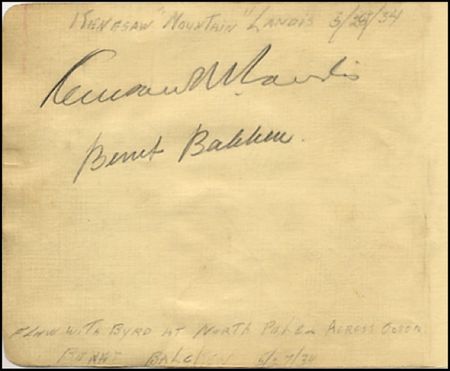 KENESAW "MOUNTAIN" LANDIS 5/25/34
Kenesaw M Landis
Bernt Balchen.
FLEW WITH BYRD AT NORTH POLE & ACROSS OCEAN
BALCHEN 6/27/34